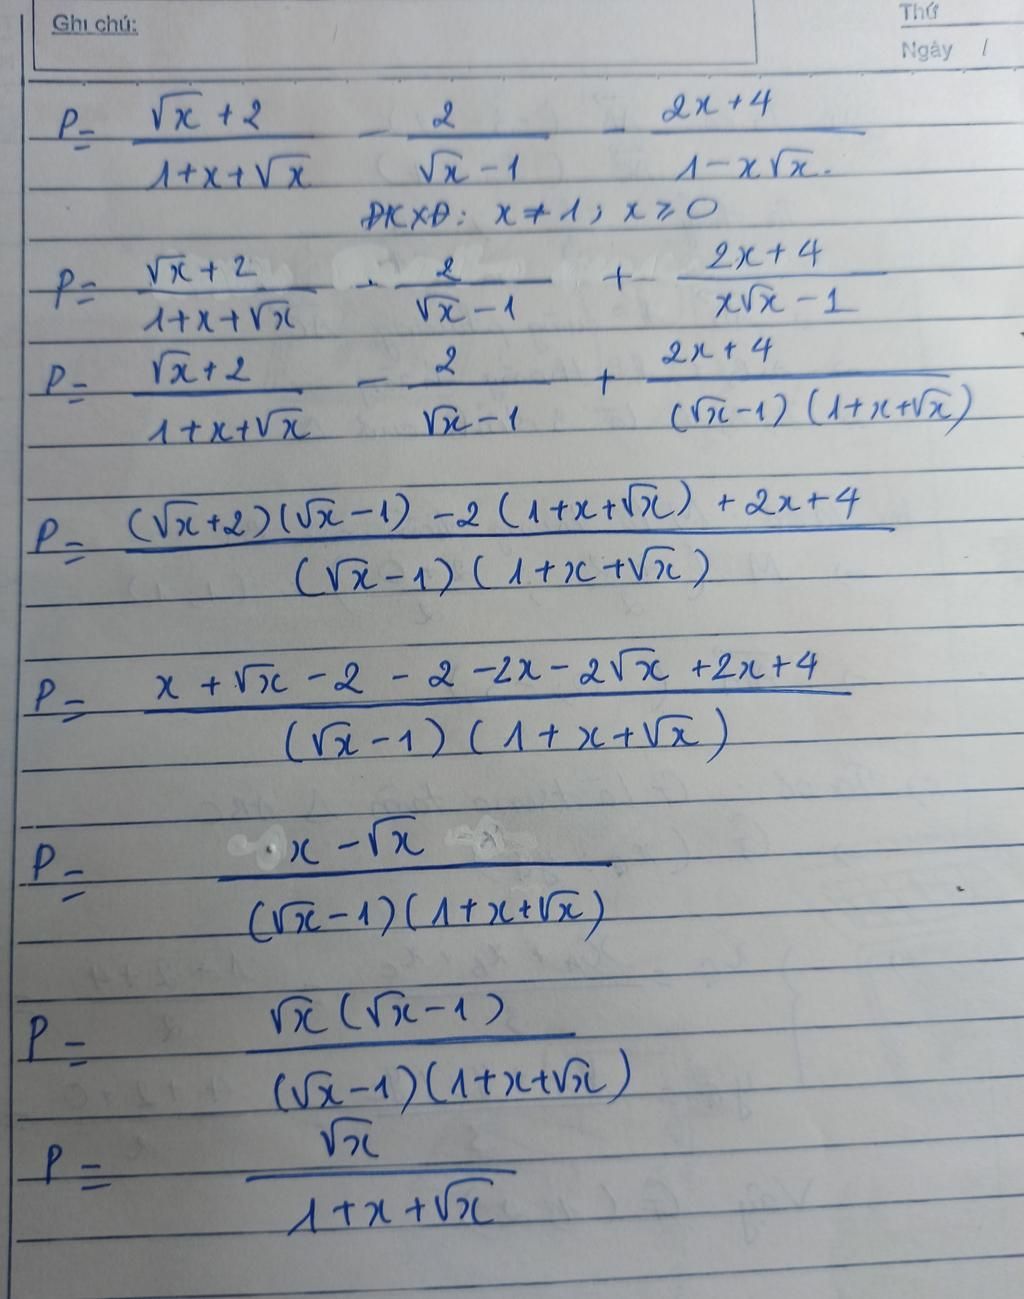 Ghi chú:
Thứ
Ngày /
P = (√x + 2)/(1 + x + √x) - 2/(√x - 1) - (2x + 4)/(1 - x√x).
ĐKXĐ: x ≠ 1 ; x ≥ 0
P = (√x + 2)/(1 + x + √x) - 2/(√x - 1) + (2x + 4)/(x√x - 1)
P = (√x + 2)/(1 + x + √x) - 2/(√x - 1) + (2x + 4)/((√x - 1)(1 + x + √x))
P = ((√x + 2)(√x - 1) - 2(1 + x + √x) + 2x + 4)/((√x - 1)(1 + x + √x))
P = (x + √x - 2 - 2 - 2x - 2√x + 2x + 4)/((√x - 1)(1 + x + √x))
P = (x - √x)/((√x - 1)(1 + x + √x))
P = (√x(√x - 1))/((√x - 1)(1 + x + √x))
P = √x/(1 + x + √x)